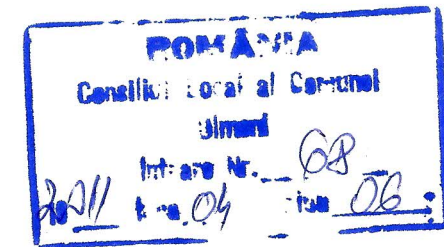 ROMÂNIA
Consiliul Local al Comunei
Ulmeni
Intrare Nr. 68
2011 luna 04 ziua 06